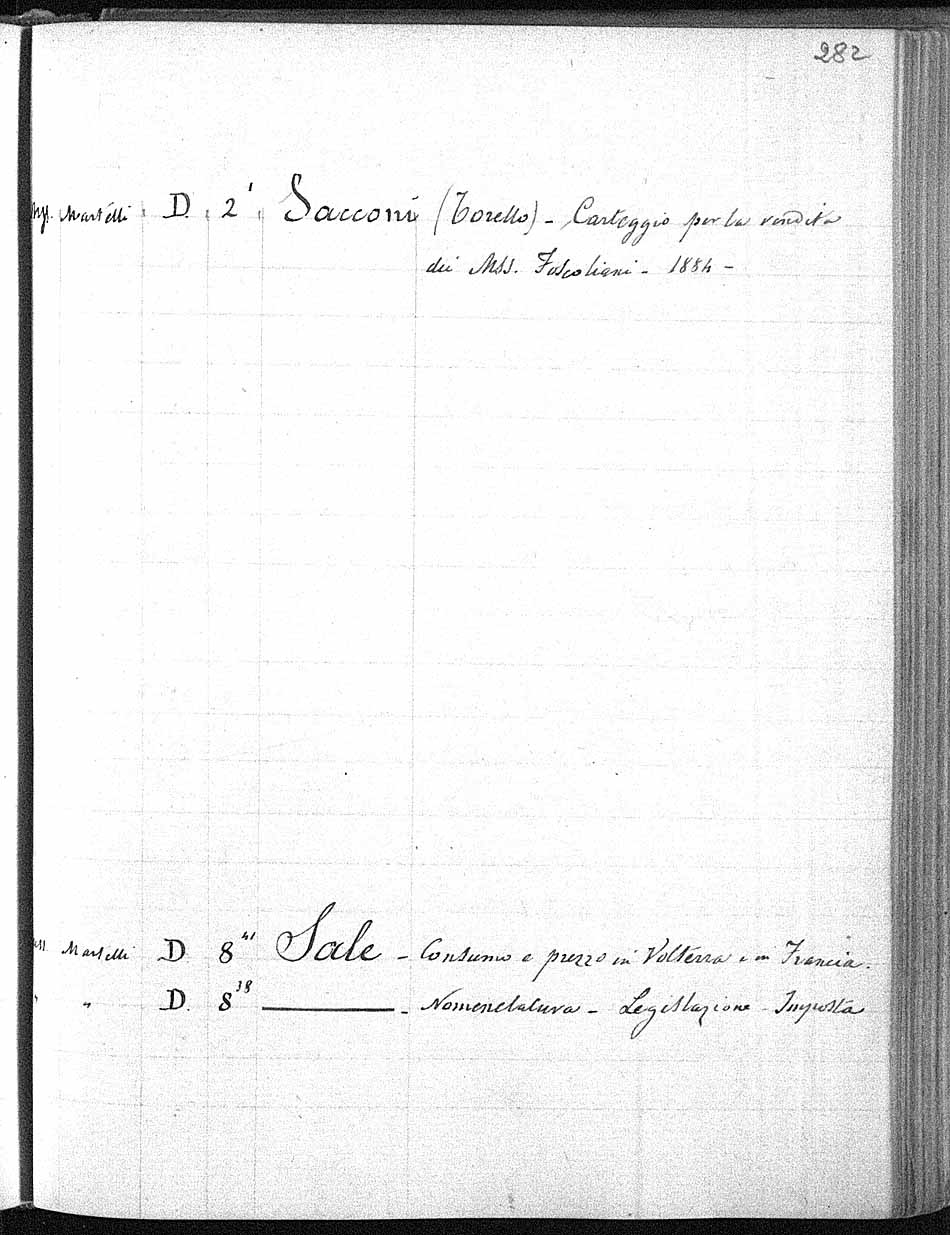 282
Mss. Martelli D. 2¹ Sacconi (Torello) - Carteggio per la vendita
dei Mss. Foscoliani - 1884 -
Martelli D 8⁴¹ Sale - Consumo e prezzo in Volterra e in Francia.
" " D. 8³⁸ ——— - Nomenclatura - Legislazione - Imposta